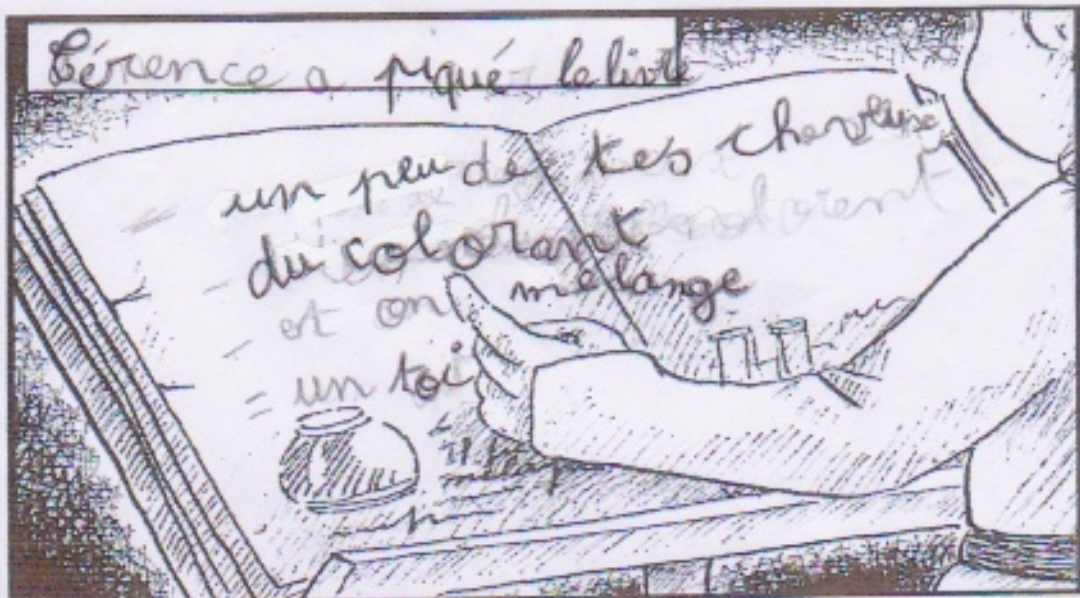 Térence a piqué le livre
un peu de tes cheveux
du colorant
et on mélange
= un toi